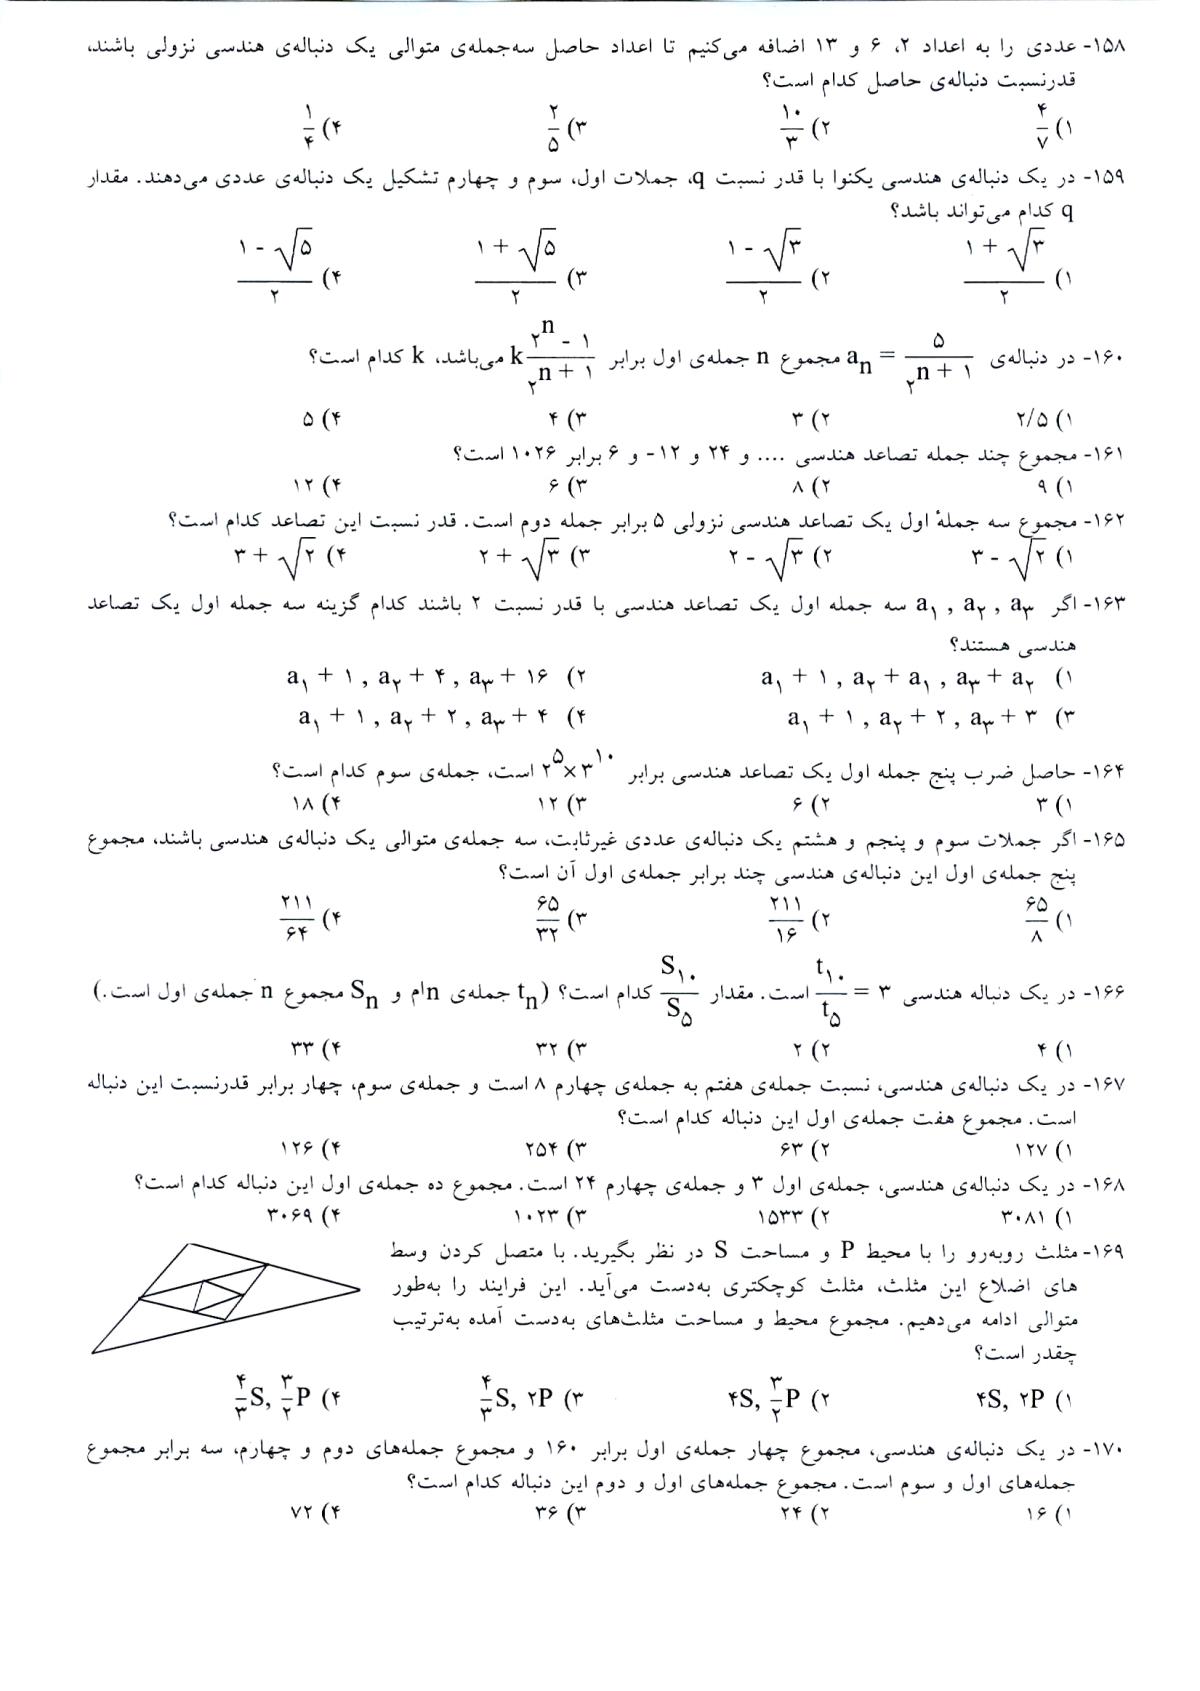 ۱۵۸- عددی را به اعداد ۲، ۶ و ۱۳ اضافه می‌کنیم تا اعداد حاصل سه‌جمله‌ی متوالی یک دنباله‌ی هندسی نزولی باشند،
قدرنسبت دنباله‌ی حاصل کدام است؟
۱) ۴/۷ ۲) ۱۰/۳ ۳) ۲/۵ ۴) ۱/۴
۱۵۹- در یک دنباله‌ی هندسی یکنوا با قدر نسبت q، جملات اول، سوم و چهارم تشکیل یک دنباله‌ی عددی می‌دهند. مقدار
q کدام می‌تواند باشد؟
۱) (۱ + √۳)/۲ ۲) (۱ - √۳)/۲ ۳) (۱ + √۵)/۲ ۴) (۱ - √۵)/۲
۱۶۰- در دنباله‌ی aₙ = ۵/۲^(n + ۱) مجموع n جمله‌ی اول برابر k (۲^n - ۱)/۲^(n + ۱) می‌باشد، k کدام است؟
۱) ۲/۵ ۲) ۳ ۳) ۴ ۴) ۵
۱۶۱- مجموع چند جمله تصاعد هندسی .... و ۲۴ و ۱۲- و ۶ برابر ۱۰۲۶ است؟
۱) ۹ ۲) ۸ ۳) ۶ ۴) ۱۲
۱۶۲- مجموع سه جملهٔ اول یک تصاعد هندسی نزولی ۵ برابر جمله دوم است. قدر نسبت این تصاعد کدام است؟
۱) ۳ - √۲ ۲) ۲ - √۳ ۳) ۲ + √۳ ۴) ۳ + √۲
۱۶۳- اگر a₁ , a₂ , a₃ سه جمله اول یک تصاعد هندسی با قدر نسبت ۲ باشند کدام گزینه سه جمله اول یک تصاعد
هندسی هستند؟
۱) a₁ + ۱ , a₂ + a₁ , a₃ + a₂ ۲) a₁ + ۱ , a₂ + ۴ , a₃ + ۱۶
۳) a₁ + ۱ , a₂ + ۲ , a₃ + ۳ ۴) a₁ + ۱ , a₂ + ۲ , a₃ + ۴
۱۶۴- حاصل ضرب پنج جمله اول یک تصاعد هندسی برابر ۲^۵×۳^۱۰ است، جمله‌ی سوم کدام است؟
۱) ۳ ۲) ۶ ۳) ۱۲ ۴) ۱۸
۱۶۵- اگر جملات سوم و پنجم و هشتم یک دنباله‌ی عددی غیرثابت، سه جمله‌ی متوالی یک دنباله‌ی هندسی باشند، مجموع
پنج جمله‌ی اول این دنباله‌ی هندسی چند برابر جمله‌ی اول آن است؟
۱) ۶۵/۸ ۲) ۲۱۱/۱۶ ۳) ۶۵/۳۲ ۴) ۲۱۱/۶۴
۱۶۶- در یک دنباله هندسی t₁₀/t₅ = ۳ است. مقدار S₁₀/S₅ کدام است؟ (tₙ جمله‌ی nام و Sₙ مجموع n جمله‌ی اول است.)
۱) ۴ ۲) ۲ ۳) ۳۲ ۴) ۳۳
۱۶۷- در یک دنباله‌ی هندسی، نسبت جمله‌ی هفتم به جمله‌ی چهارم ۸ است و جمله‌ی سوم، چهار برابر قدرنسبت این دنباله
است. مجموع هفت جمله‌ی اول این دنباله کدام است؟
۱) ۱۲۷ ۲) ۶۳ ۳) ۲۵۴ ۴) ۱۲۶
۱۶۸- در یک دنباله‌ی هندسی، جمله‌ی اول ۳ و جمله‌ی چهارم ۲۴ است. مجموع ده جمله‌ی اول این دنباله کدام است؟
۱) ۳۰۸۱ ۲) ۱۵۳۳ ۳) ۱۰۲۳ ۴) ۳۰۶۹
۱۶۹- مثلث روبه‌رو را با محیط P و مساحت S در نظر بگیرید. با متصل کردن وسط
های اضلاع این مثلث، مثلث کوچکتری به‌دست می‌آید. این فرایند را به‌طور
متوالی ادامه می‌دهیم. مجموع محیط و مساحت مثلث‌های به‌دست آمده به‌ترتیب
چقدر است؟
۱) ۴S, ۲P ۲) ۴S, ۳/۲P ۳) ۴/۳S, ۲P ۴) ۴/۳S, ۳/۲P
۱۷۰- در یک دنباله‌ی هندسی، مجموع چهار جمله‌ی اول برابر ۱۶۰ و مجموع جمله‌های دوم و چهارم، سه برابر مجموع
جمله‌های اول و سوم است. مجموع جمله‌های اول و دوم این دنباله کدام است؟
۱) ۱۶ ۲) ۲۴ ۳) ۳۶ ۴) ۷۲